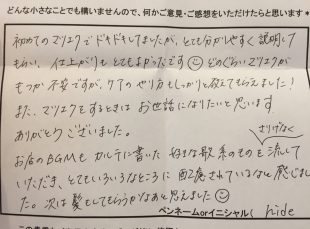 どんな小さなことでも構いませんので、何かご意見・ご感想をいただけたらと思います＊
初めてのマツエクでドキドキしてましたが、とても分かりやすく説明して
もらい、仕上がりもとてもよかったです☺どのくらいマツエクが
もつか不安ですが、ケアのやり方もしっかりと教えてもらえました！
また、マツエクをするときはお世話になりたいと思います
ありがとうございました。
さりげなく
お店のBGMもカルテに書いた好きな歌系のものを流して
いただき、とてもいろいろなところに配慮されているなと感じまし
た。次は髪もしてもらうかなあと思えました☺
ペンネームorイニシャル( hide